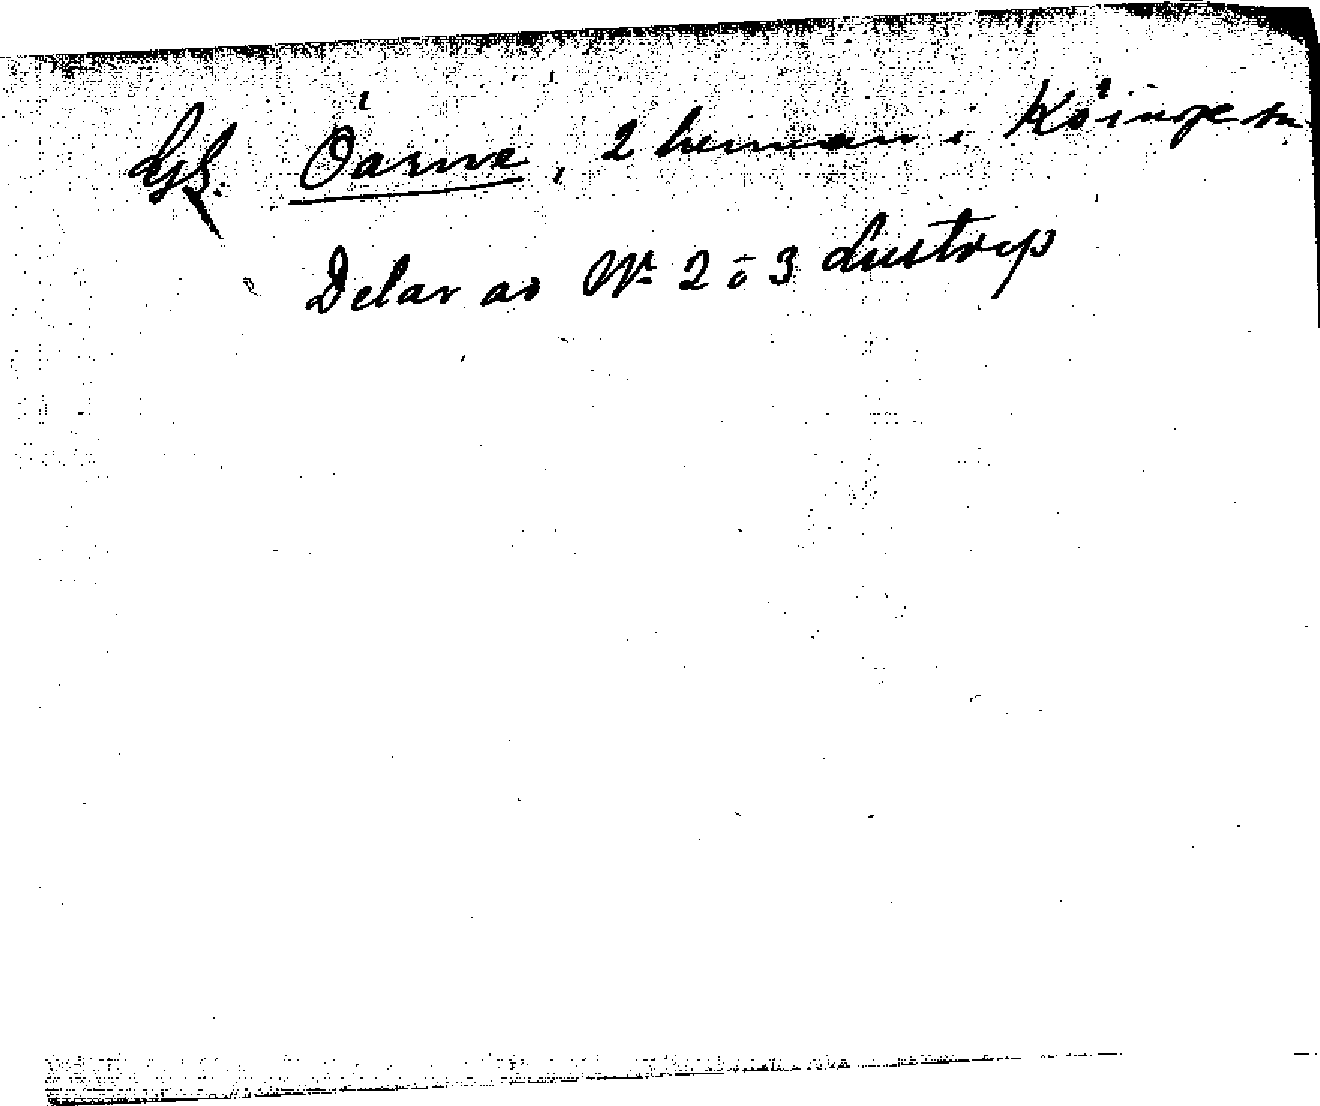 Lgh. Öarne, 2 hemman i Köinge sn.
Delar av Nr 2 o 3 Lustorp